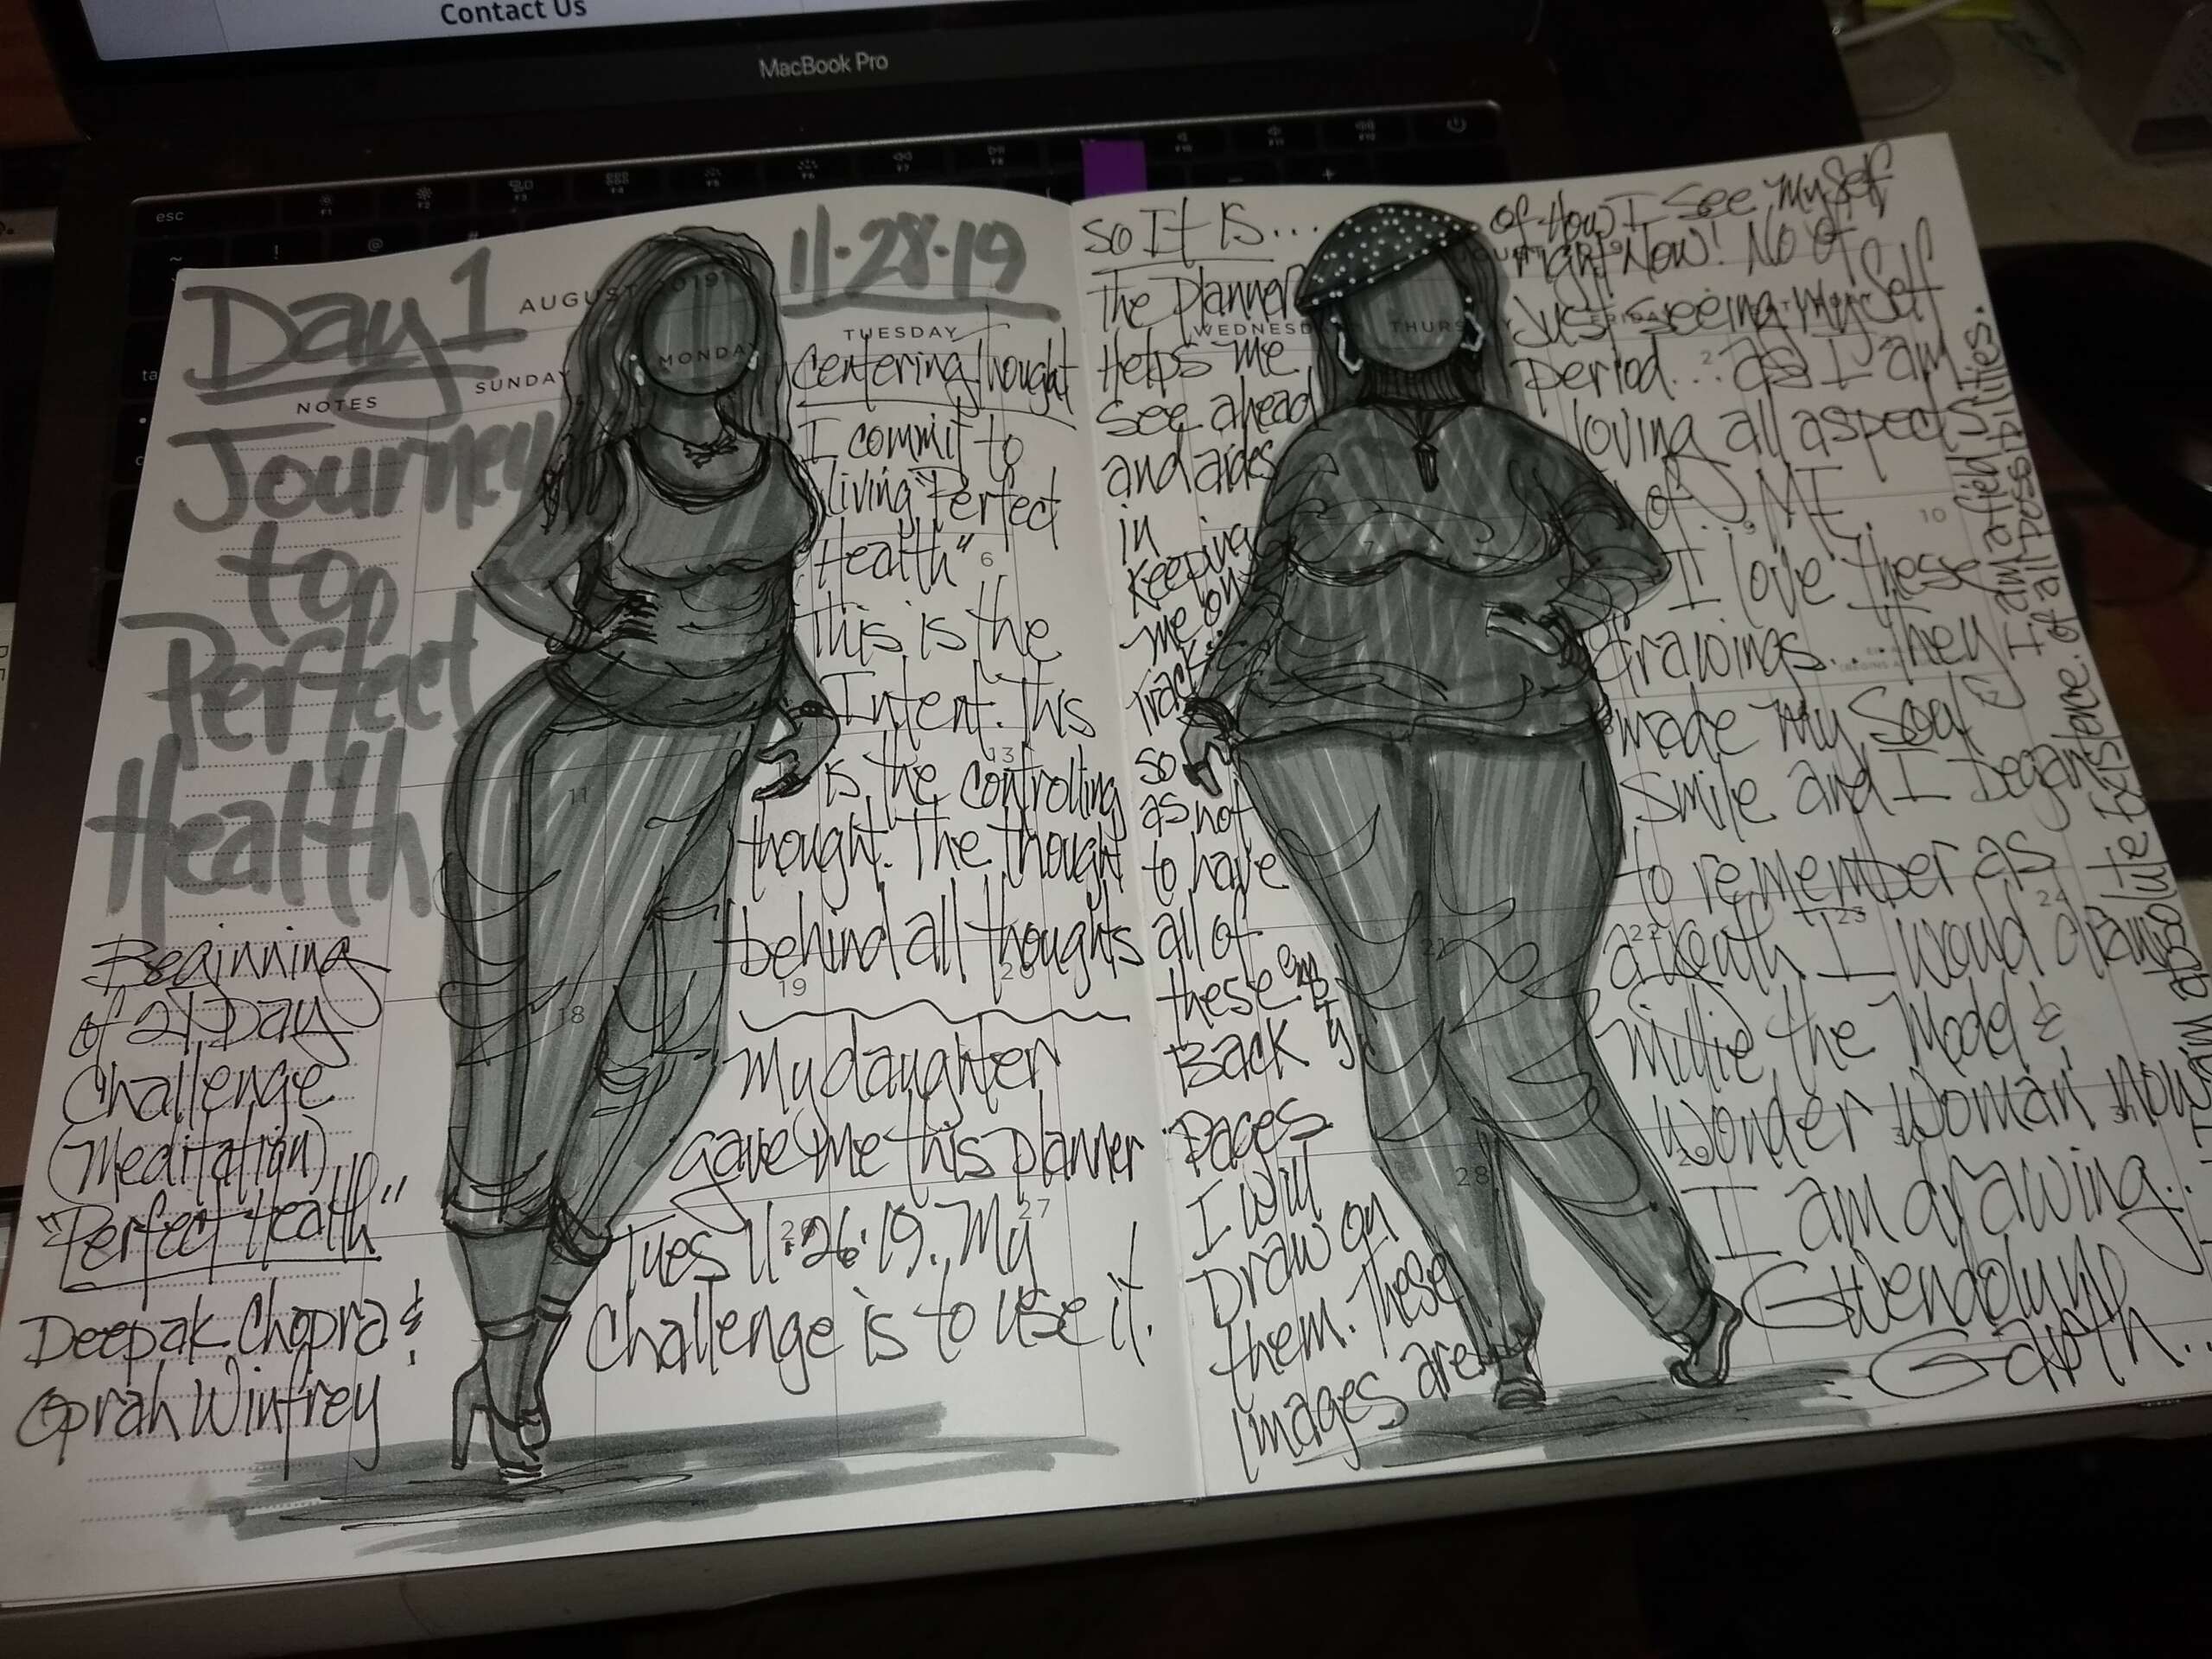 Contact Us
MacBook Pro
esc
Day 1
11·28·19
AUGUST 2019
NOTES
SUNDAY
MONDAY
TUESDAY
Journey
to
Perfect
Health
Beginning
of 21 Day
Challenge
(Meditation)
"Perfect Health"
Deepak Chopra &
Oprah Winfrey
Centering thought
I commit to
living "Perfect
Health"
This is the
Intent. This
is the controlling
thought. The thought
behind all thoughts
My daughter
gave me this planner
Tues 11·26·19. My
Challenge is to use it.
6
11
13
18
19
20
27
So It Is...
The Planner
Helps me
see ahead
and aides
in
keeping
me on
Track
so
as not
to have
all of
these empty
Back
Pages
I will
Draw on
them. These
images are
WEDNESDAY
THURSDAY
FRIDAY
of How I see myself
right Now! No of
Just seeing myself
period... as I am
loving all aspects
of ME.
I love these
drawings... They
made my Soul
Smile and I began
to remember as
a youth I would draw
Millie the Model &
Wonder Woman, now
I am drawing..
Gwendolyn
Garth...
2
7
9
10
21
22
23
24
28
29
I am a field
of all possibilities.
I am absolute Existence.